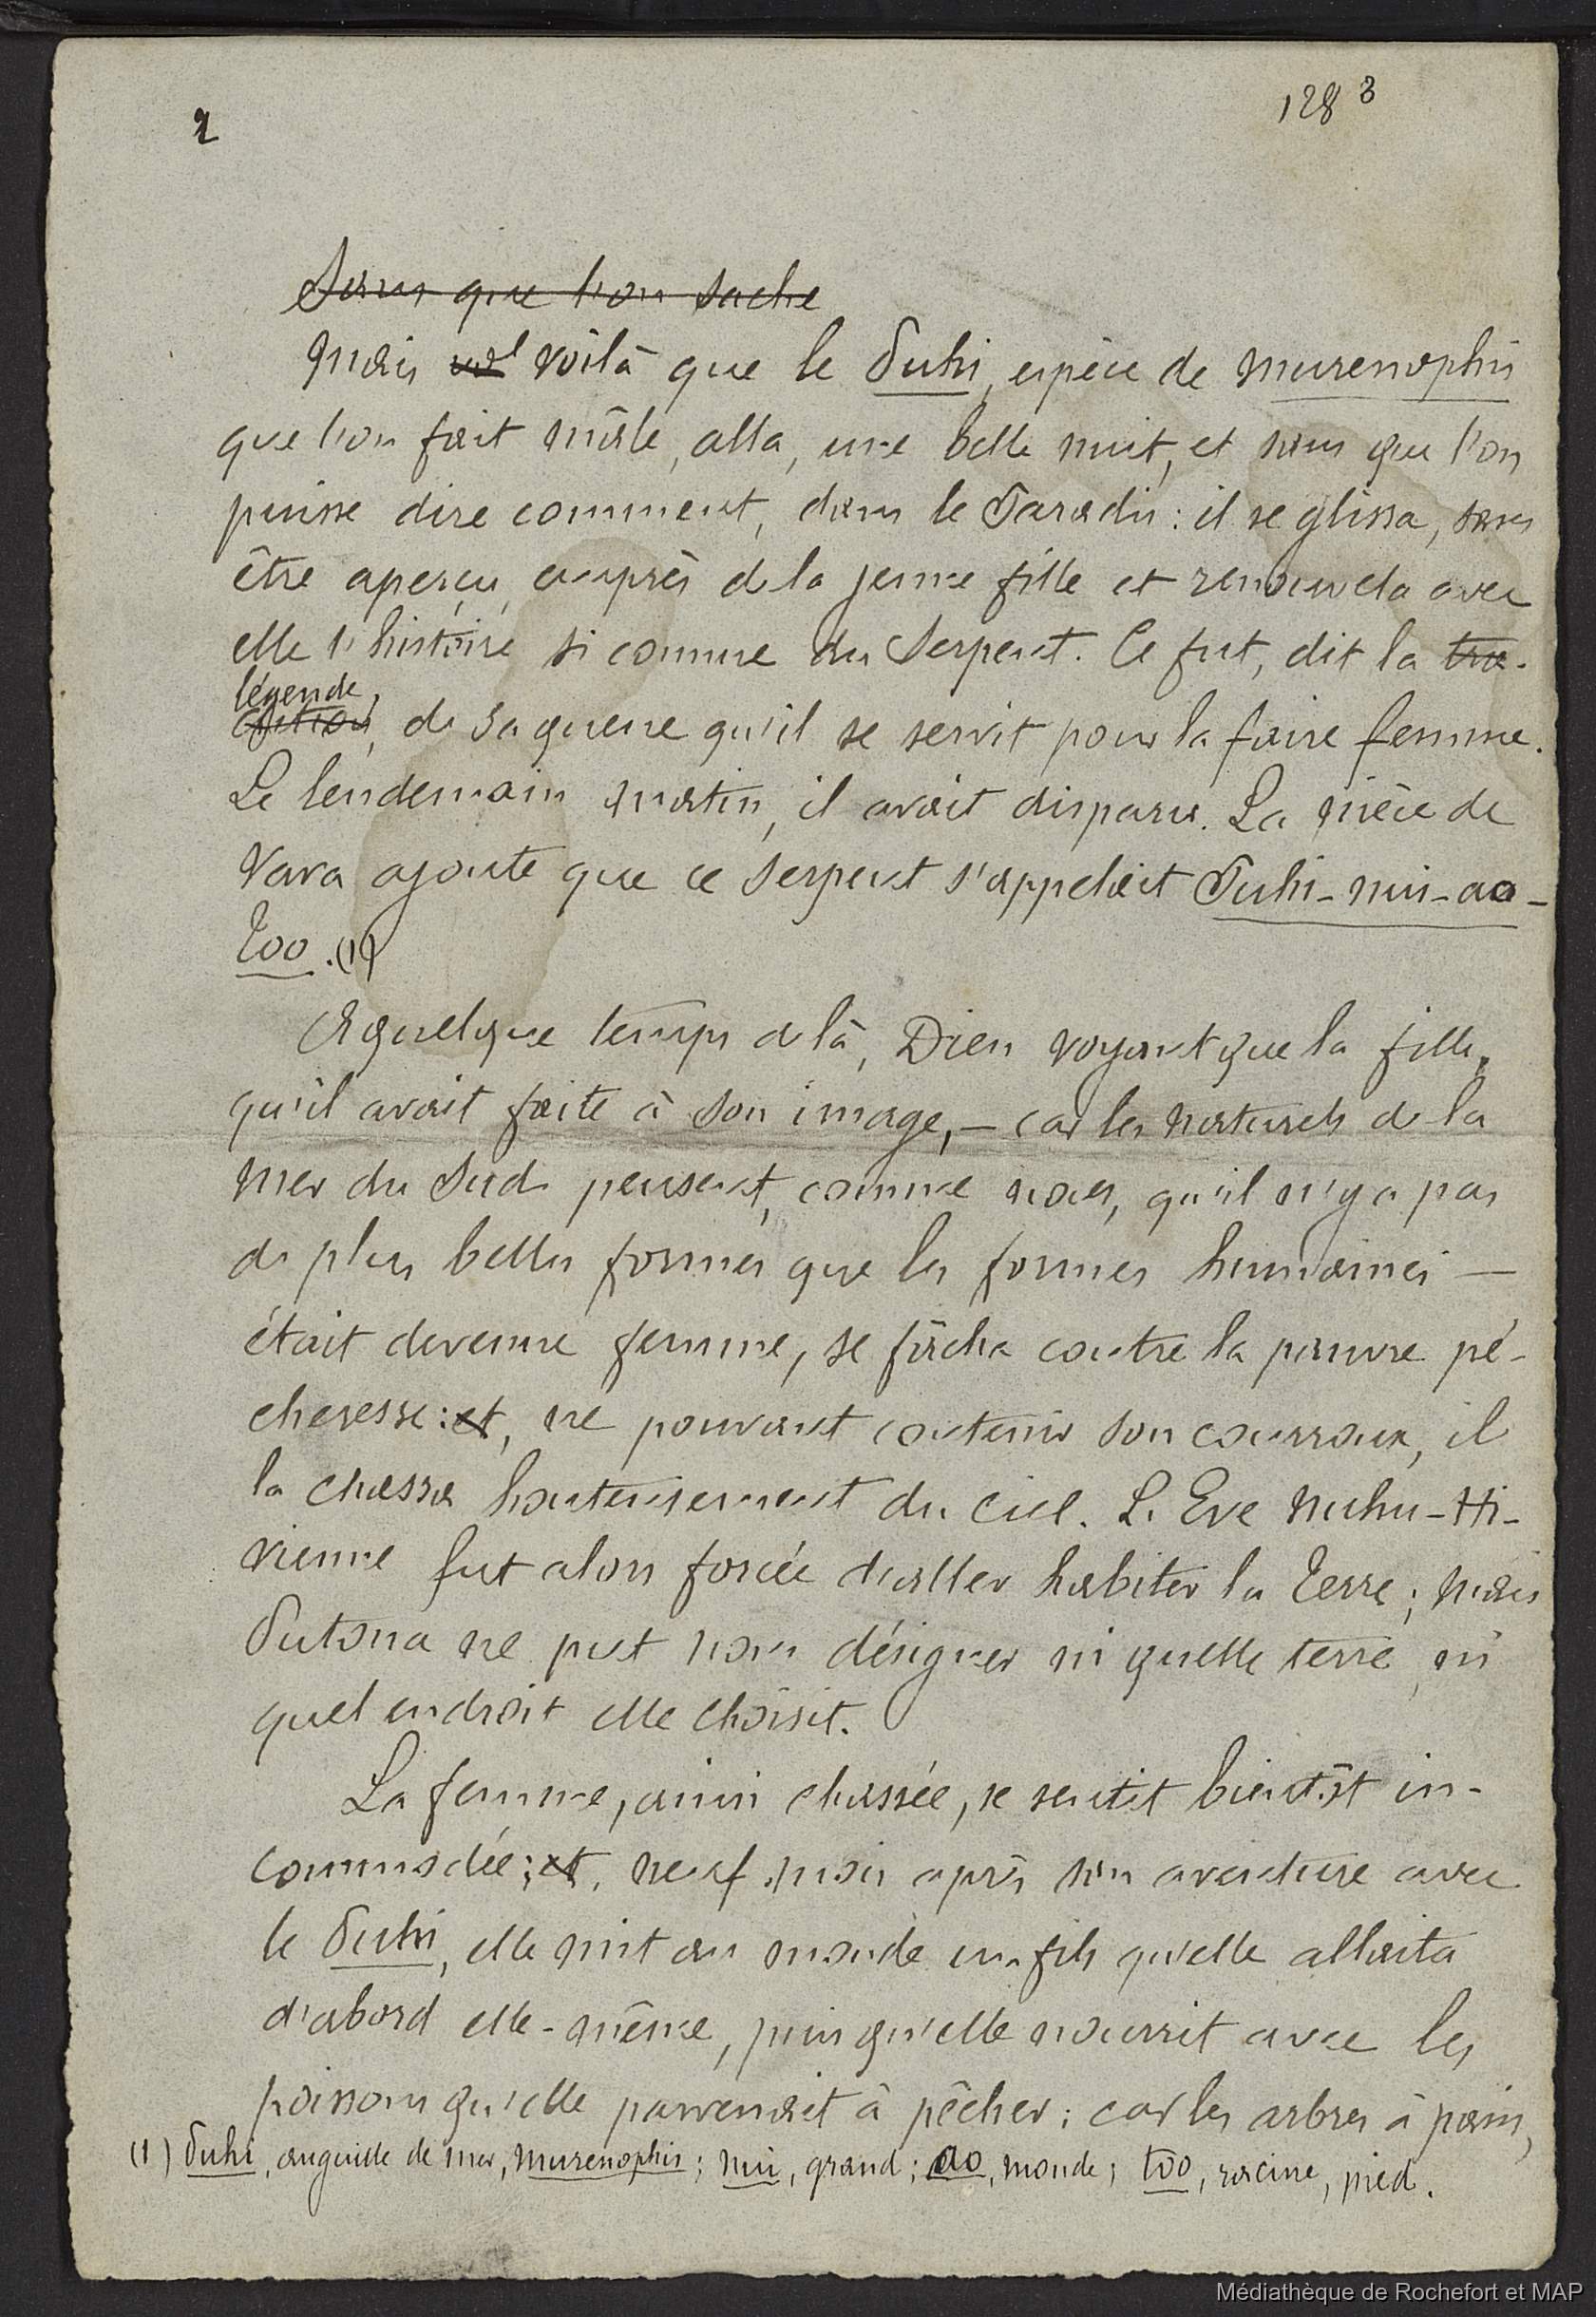 2
128 3
Sans que l'on sache
Mais voilà que le Puhi, espèce de murenophis
que l'on fait mâle, alla, une belle nuit, et sans que l'on
puisse dire comment, dans le Paradis: il se glissa, sans
être aperçu, auprès de la jeune fille et renouvela avec
elle l'histoire si connue du Serpent. Ce fut, dit la tra-
légende
dition, de sa queue qu'il se servit pour la faire femme.
Le lendemain matin, il avait disparu. La nièce de
Vava ajoute que ce serpent s'appelait Puhi-nui-ao-
too. (1)
A quelque temps de là, Dieu voyant que la fille,
qu'il avait faite à son image, — car les naturels de la
mer du Sud pensent, comme nous, qu'il n'y a pas
de plus belles formes que les formes humaines —
était devenue femme, se fâcha contre la pauvre pé-
cheresse: et, ne pouvant contenir son courroux, il
la chassa honteusement du ciel. L'Eve Nuhu-Hi-
vienne fut alors forcée d'aller habiter la terre; mais
Putona ne put nous désigner ni quelle terre, ni
quel endroit elle choisit.
La femme, ainsi chassée, se sentit bientôt in-
commodée; et, neuf mois après son aventure avec
le Puhi, elle mit au monde un fils qu'elle allaita
d'abord elle-même, puis qu'elle nourrit avec les
poissons qu'elle parvenait à pêcher; car les arbres à pain,
(1) Puhi, anguille de mer, murenophis; nui, grand; ao, monde; too, racine, pied.
Médiathèque de Rochefort et MAP